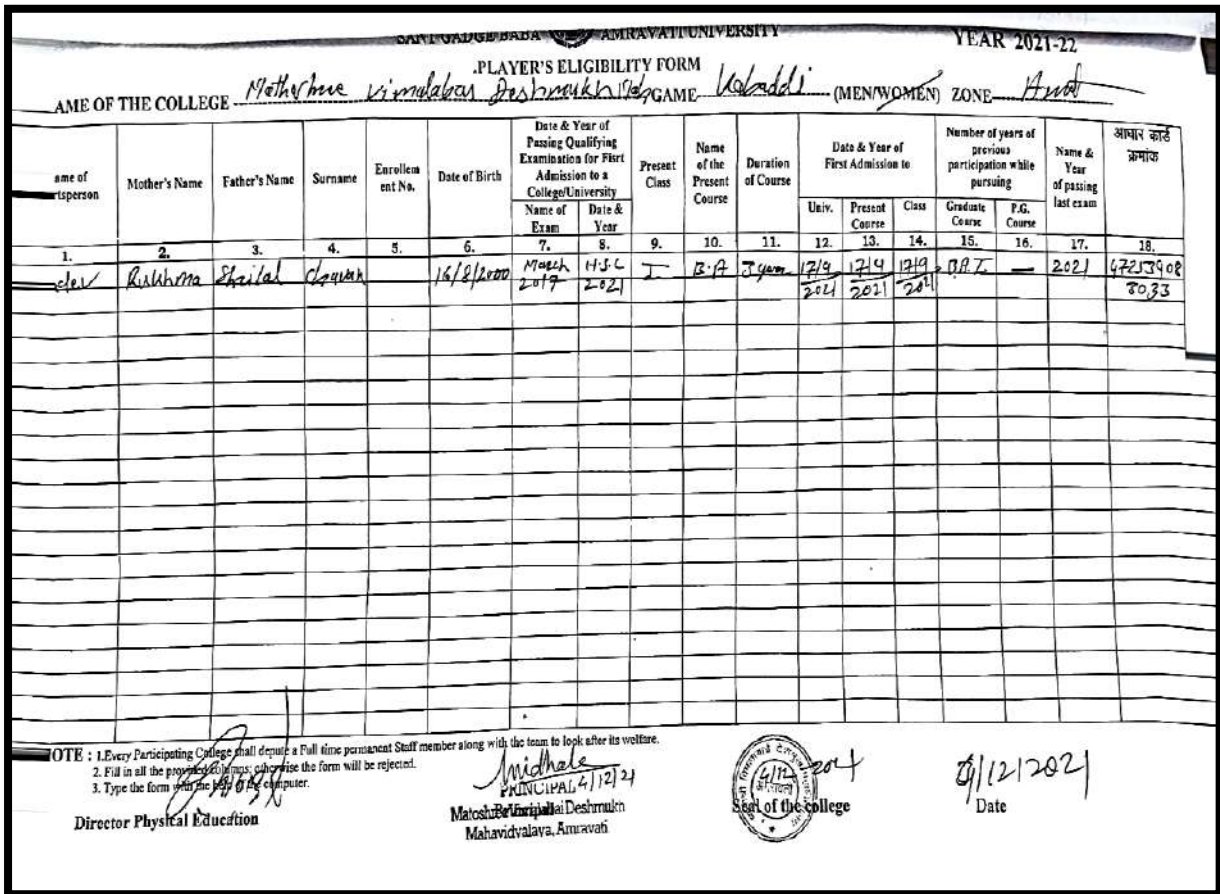 SANT GADGE BABA AMRAVATI UNIVERSITY
YEAR 2021-22
PLAYER'S ELIGIBILITY FORM
AME OF THE COLLEGE Vimalabai Deshmukh GAME Kabaddi (MEN/WOMEN) ZONE
ame of rtsperson
Mother's Name
Father's Name
Surname
Enrollem ent No.
Date of Birth
Date & Year of Passing Qualifying Examination for Fisrt Admission to a College/University
Name of Exam
Date & Year
Present Class
Name of the Present Course
Duration of Course
Date & Year of First Admission to
Univ.
Present Course
Class
Number of years of previous participation while pursuing
Graduate Course
P.G. Course
Name & Year of passing last exam
आधार कार्ड क्रमांक
1. 2. 3. 4. 5. 6. 7. 8. 9. 10. 11. 12. 13. 14. 15. 16. 17. 18.
dev 16/8/2000 March H.S.C I B.A 3 year 17/9 17/9 17/9 B.A.I — 2021 47253908
2021 2021 2021 2021 8033
OTE : 1.Every Participating College shall depute a Full time permanent Staff member along with the team to look after its welfare.
2. Fill in all the provided columns; otherwise the form will be rejected.
3. Type the form with the help of the computer.
PRINCIPAL 4/12/21
Director Physical Education
Deshmukh
Mahavidyalaya, Amravati
4/12 2021
Seal of the college
4/12/2021
Date